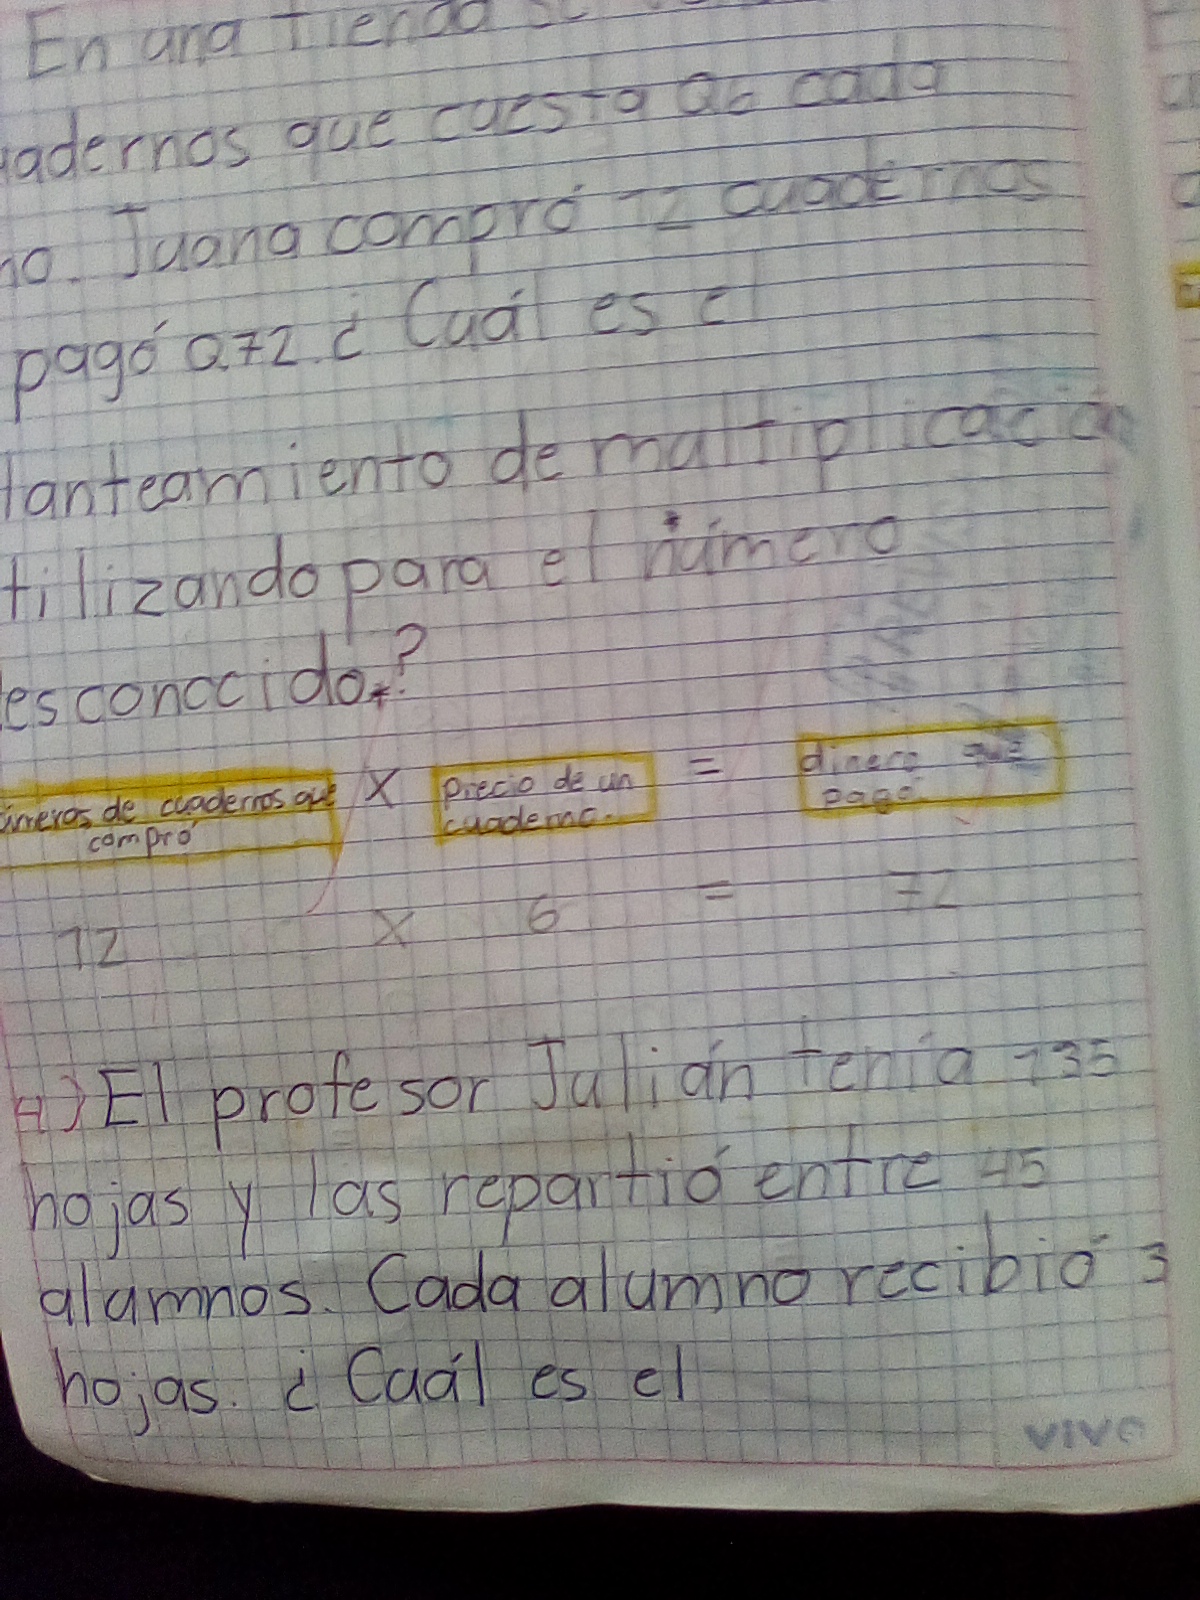 En una Tienda se
uadernos que cuesta Q6 cada
no. Juana compró 12 cuadernos
pagó Q72. ¿Cuál es el
lanteamiento de multiplicación
tilizando para el número
esconocido?
úmeros de cuadernos que compró X precio de un cuaderno. = dinero que pagó
12 X 6 = 72
4) El profesor Julián tenía 135
hojas y las repartió entre 45
alumnos. Cada alumno recibió 3
hojas. ¿Cuál es el
VIVO